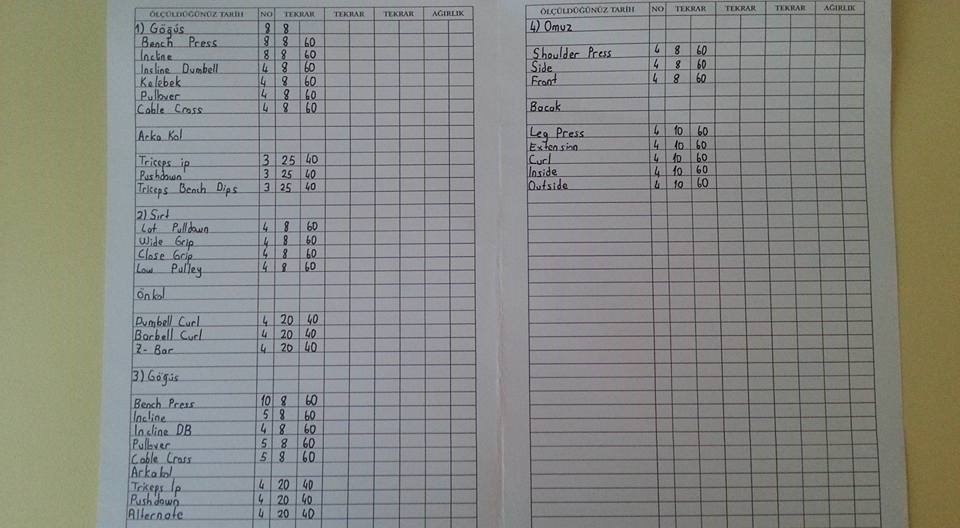 ÖLÇÜLDÜĞÜNÜZ TARİH NO TEKRAR TEKRAR TEKRAR AĞIRLIK
1) Göğüs 8 8
Bench Press 8 8 60
Incline 8 8 60
Insline Dumbell 4 8 60
Kelebek 4 8 60
Pullover 4 8 60
Cable Cross 4 8 60
Arka Kol
Triceps ip 3 25 40
Pushdown 3 25 40
Triceps Bench Dips 3 25 40
2) Sırt
Lat Pulldown 4 8 60
Wide Grip 4 8 60
Close Grip 4 8 60
Low Pulley 4 8 60
Önkol
Dumbell Curl 4 20 40
Barbell Curl 4 20 40
Z-Bar 4 20 40
3) Göğüs
Bench Press 10 8 60
Incline 5 8 60
Incline DB 4 8 60
Pullover 5 8 60
Cable Cross 5 8 60
Arkakol
Triceps Ip 4 20 40
Pushdown 4 20 40
Alternate 4 20 40
ÖLÇÜLDÜĞÜNÜZ TARİH NO TEKRAR TEKRAR TEKRAR AĞIRLIK
4) Omuz
Shoulder Press 4 8 60
Side 4 8 60
Front 4 8 60
Bacak
Leg Press 4 10 60
Extension 4 10 60
Curl 4 10 60
Inside 4 10 60
Outside 4 10 60